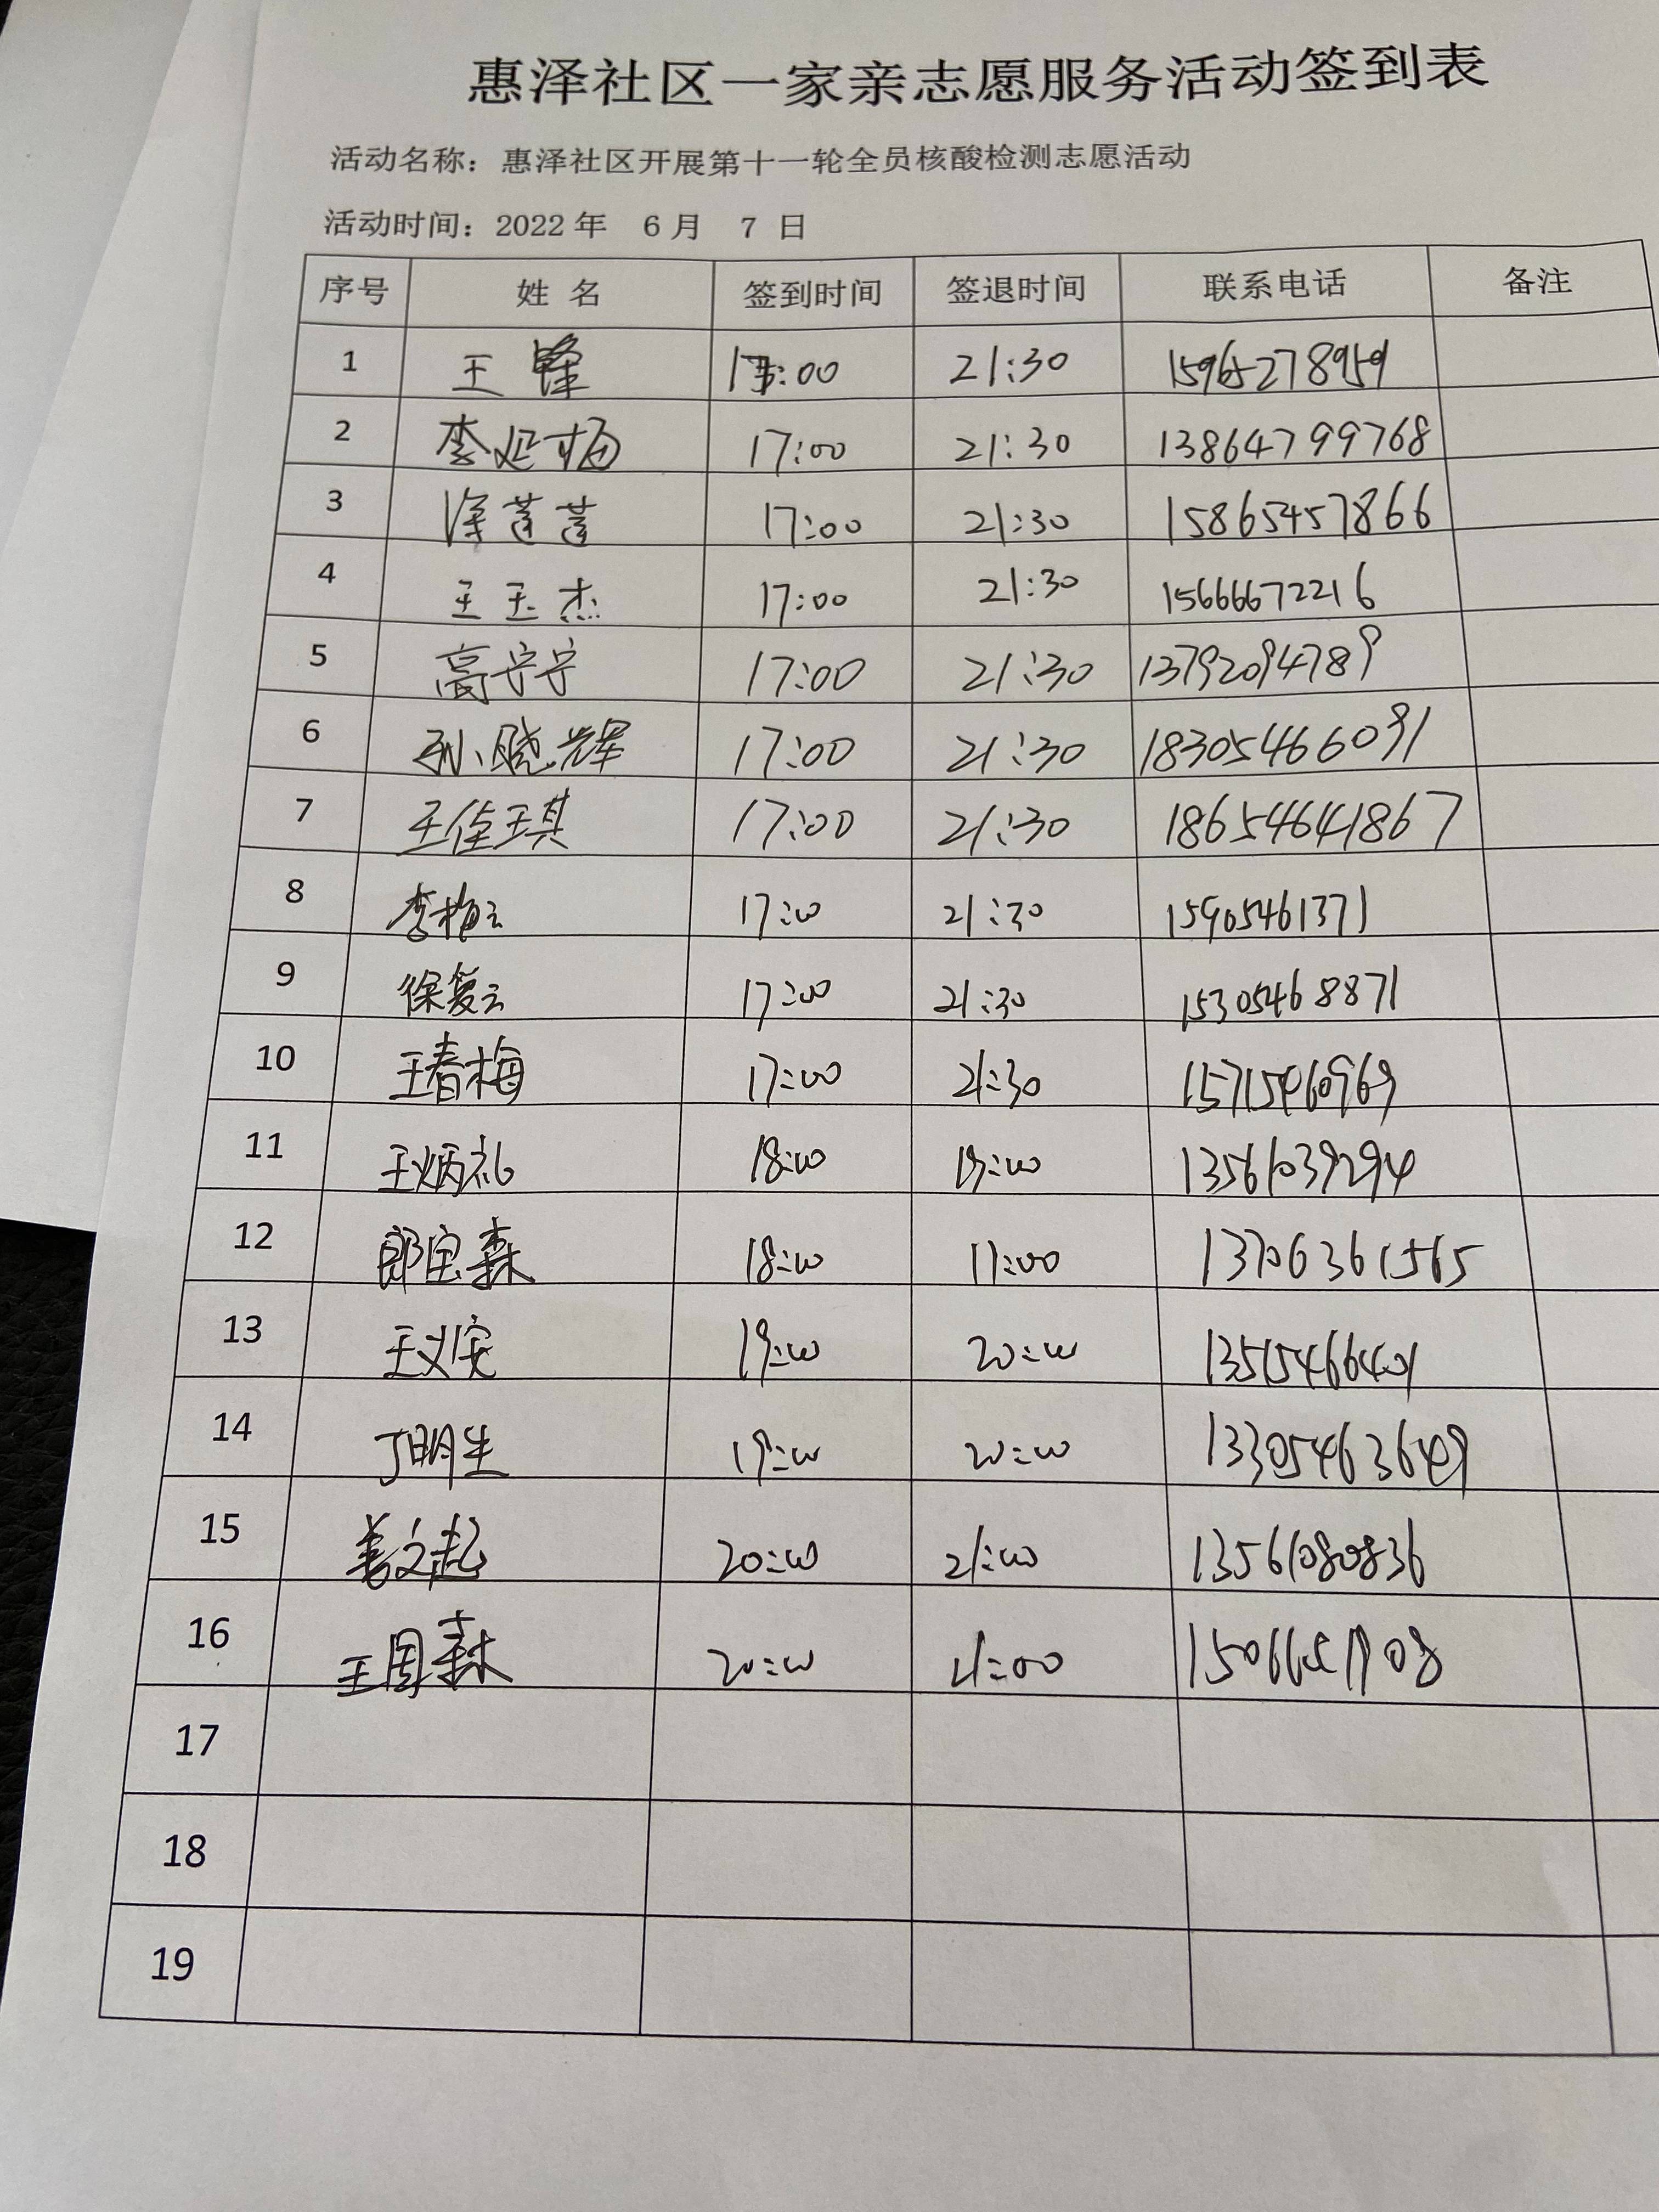 惠泽社区一家亲志愿服务活动签到表
活动名称：惠泽社区开展第十一轮全员核酸检测志愿活动
活动时间：2022 年 6 月 7 日
序号 姓 名 签到时间 签退时间 联系电话 备注
1 王锋 17:00 21:30 15965278959
2 李延梅 17:00 21:30 13864799768
3 17:00 21:30 15865457866
4 王玉杰 17:00 21:30 15666672216
5 高宁宁 17:00 21:30 13792094789
6 孙晓辉 17:00 21:30 18305466091
7 王佳琪 17:00 21:30 18654641867
8 李梅云 17:00 21:30 15905461371
9 徐复云 17:00 21:30 15305468871
10 王春梅 17:00 21:30 15715460969
11 王炳礼 18:00 19:00 13561039294
12 郎宝森 18:00 19:00 13706361565
13 王义安 19:00 20:00 13515466401
14 丁明生 19:00 20:00 13305463649
15 姜文起 20:00 21:00 13561080836
16 王国森 20:00 21:00
17
18
19